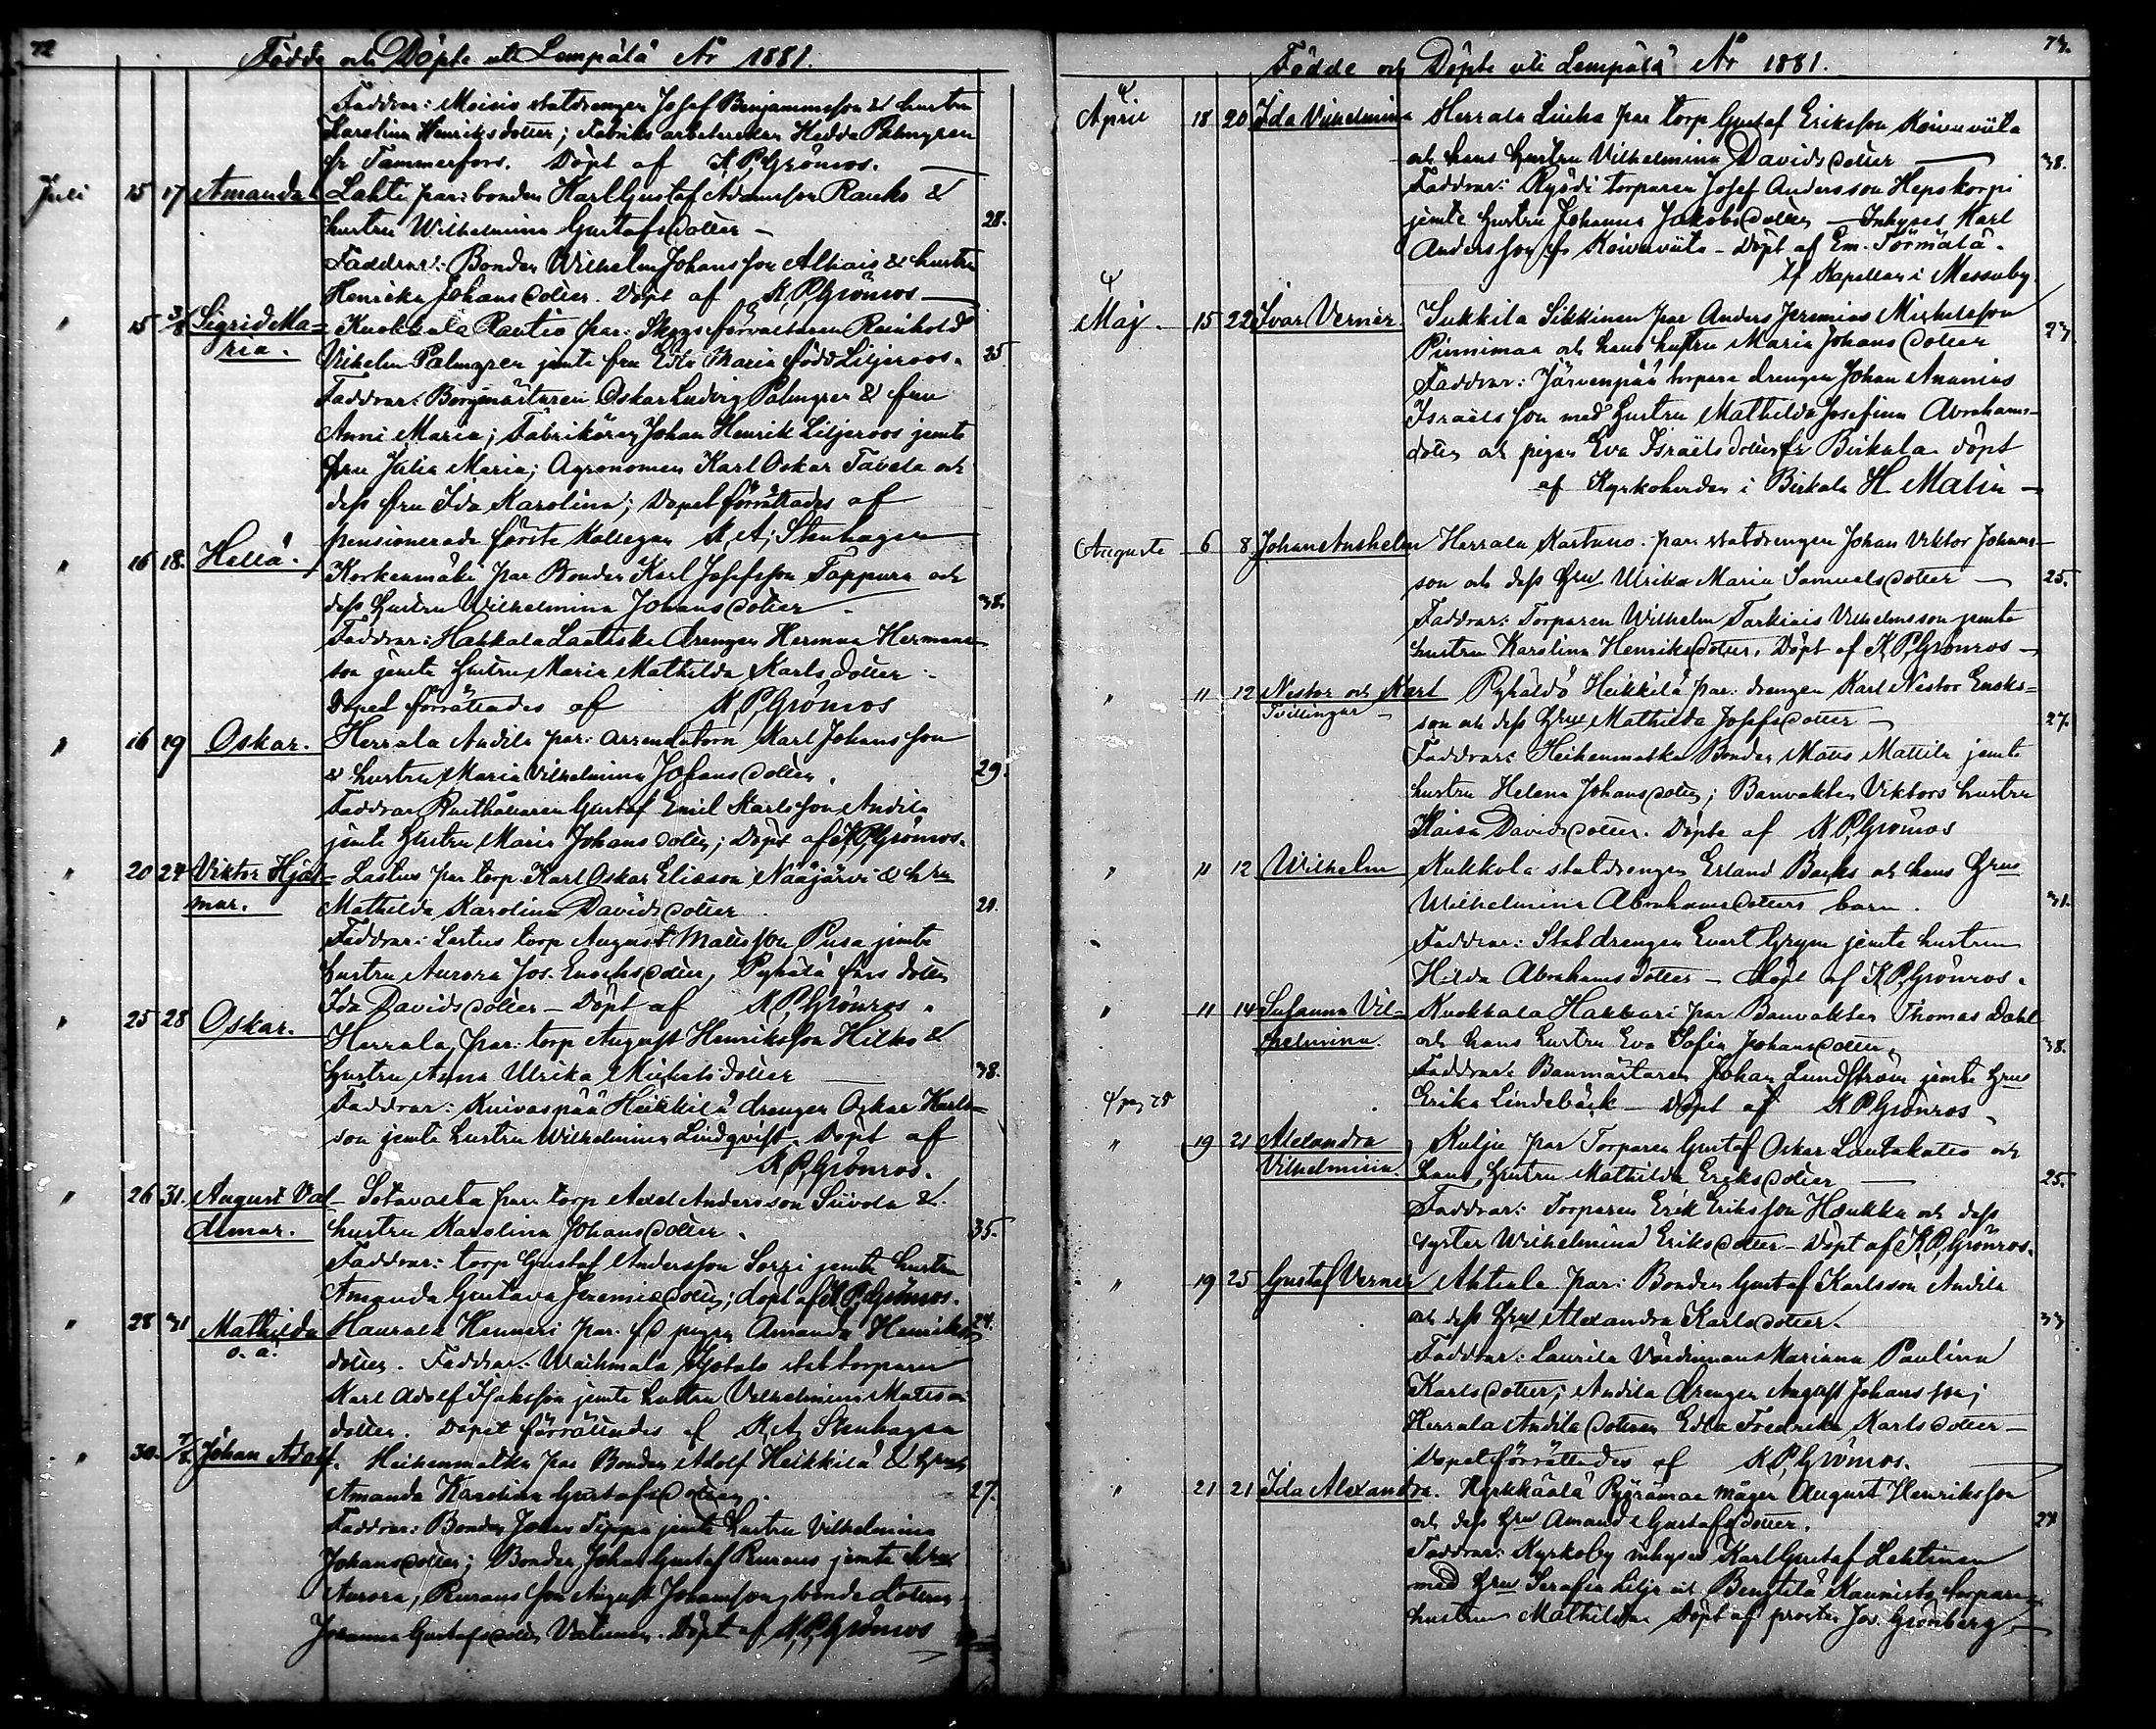 72
Födde och Döpte uti Lempälä År 1881.
Faddrar: Moisio statdrengen Josef Benjaminsson & hustru
Karolina Henriksdotter; Fabriks arbeterskan Hedda Palmgren
fr Tammerfors. Döpt af K.P.Grönros.
Juli 15 17 Amanda Lahti par: bonden Karl Gustaf Adamsson Rauho &
hustru Wilhelmina Gustafsdotter — 28.
Faddrar: Bonden Wilhelm Johansson Alhais & hustru
Henrika Johansdotter. Döpt af K.P.Grönros —
" 15 3/8 Sigrid Ma- Kuokkala Rautio par: Skogsförvaltaren Reinhold
ria. Vilhelm Palmgren jemte fru Edla Maria född Liljeroos. 25
Faddrar: Borgmästaren Oskar Ludvig Palmgren & fru
Anni Maria; Fabrikören Johan Henrik Liljeroos jemte
fru Julia Maria; Agronomen Karl Oskar Tavela och
dess fru Ida Karolina; Dopet förrättades af
pensionerade förste Kollegan K.A. Stenhagen
" 16 18. Hellä. Korkenmäki par Bonden Karl Josefsson Tappura och
dess hustru Wilhelmina Johansdotter. 38.
Faddrar: Hakkala Lauttiska drengen Herman Hermans-
son jemte hustru Maria Mathilda Karlsdotter.
Dopet förrättades af K.P.Grönros
" 16 19 Oskar. Herrala Andila par: arrendatorn Karl Johansson
& hustru Maria Vilhelmina Johansdotter. 29.
Faddrar Rusthållaren Gustaf Emil Karlsson Andila
jemte hustru Maria Johansdotter; Döpt af K.P.Grönros.
" 20 24 Viktor Hjal- Lastus par torp. Karl Oskar Eliasson Nääjärvi & hru
mar. Mathilda Karolina Davidsdotter 21.
Faddrar: Lastus torp August Matsson Pusa jemte
hustru Aurora Jos. Enochsdotter, Pyhältö fars dotter
Ida Davidsdotter — Döpt af K.P.Grönros.
" 25 28 Oskar. Herrala par: torp August Henriksson Hilko &
hustru Anna Ulrika Michelsdotter — 38.
Faddrar: Kuivaspää Heikkilä drengen Oskar Karls-
son jemte hustru Wilhelmina Lindqvist. Döpt af
K.P.Grönros.
" 26 31. August Val- Sotavalta par: torp Axel Andersson Siivola &
demar. hustru Karolina Johansdotter. 35.
Faddrar: torp Gustaf Andersson Sorri jemte hustru
Amanda Gustava Jeremiedotter; döpt af K.P.Grönros.
" 28 31 Mathilda Haurala Henneri par. pigan Amanda Henriks- 24.
o.ä. dotter. Faddrar: Waihmala stattorparen
Karl Adolf Isaksson jemte hustru Vilhelmina Mats-
dotter. Dopet förrättades af K.A. Stenhagen
" 30. 7/8. Johan Adolf. Heikenmatka par Bonden Adolf Heikkilä & hru
Amanda Karolina Gustafsdotter. 27.
Faddrar: Bonden Johan Seppä jemte hustru Vilhelmina
Johansdotter; Bonden Johan Gustaf Ruraus jemte hru
Aurora; Ruraus son August Johansson, bonde dottern
Johanna Gustafsdotter. Döpt af K.P.Grönros
73.
Födde och Döpte uti Lempälä År 1881.
April 18 20 Ida Vilhelmina Herrala par torp Gustaf Eriksson Koivuviita
och hans hustru Vilhelmina Davidsdotter — 38.
Faddrar: Ryödi torparen Josef Andersson Hepokorpi
jemte hustru Johanna Jakobsdotter — Inhyses Karl
Andersson fr Koivuviita — Döpt af Em. Törmälä.
Kapellan i Messuby.
Maj. 15 22 Ivar Verner. Sukkila Sikkinen par Anders Jeremias Michelsson
Piinimaa och hans hustru Maria Johansdotter 27
Faddrar: Järvenpää torpare drengen Johan Ananias
Israelsson med hustru Mathilda Josefina Abrahams-
dotter och pigan Eva Israelsdotter fr Birkala döpt
af Kyrkoherden i Birkala H Malin —
Augusti 6 8 Johan Anshelm Herrala Kartano. par: statdrengen Johan Viktor Johans-
son och dess hru Ulrika Maria Samuelsdotter — 25.
Faddrar: Torparen Wilhelm Tarkiais Vilhelmsson jemte
hustru Karolina Henriksdotter. Döpt af K.P.Grönros —
" 11 12 Nestor och Karl Pyhältö Heikkilä par: drengen Karl Nestor Enoks-
Tvillingar — son och dess hru Mathilda Josefsdotter — 27.
Faddrar: Heikenmatka Bonden Mats Mattila jemte
hustru Helena Johansdotter; Banvakten Viktors hustru
Kaisa Davidsdotter. Döpte af K.P.Grönros
" 11 12 Wilhelm Kukkola statdrengen Erland Backs och hans hrus
Wilhelmina Abrahamsdotters barn. 31.
Faddrar: Statdrengen Evert Grym jemte hustrun
Hilda Abrahamsdotter — döpt af K.P.Grönros.
" 11 14 Susanna Vil- Kuokkala Hakkari par Banvakten Thomas Dahl
helmina. och hans hustru Eva Sofia Johansdotter. 38.
Faddrar: Banmästaren Johan Lundström jemte hru
Erika Lindebäck — Döpt af K.P.Grönros
pag 28
" 19 21 Alexandra Kulju par Torparen Gustaf Oskar Lautakatto och
Vilhelmina. hans hustru Mathilda Eriksdotter — 25.
Faddrar: Torparen Erik Eriksson Haukka och dess
syster Wilhelmina Eriksdotter — Döpt af K.P.Grönros.
" 19 25 Gustaf Verner Ahtiala par: Bonden Gustaf Karlsson Andila
och dess hru Alexandra Karlsdotter. 33
Faddrar: Laurila Värdinnan Mariana Paulina
Karlsdotter; Andila drengen August Johansson;
Herrala Andila dottern Edla Fredrika Karlsdotter —
Dopet förrättades af K.P.Grönros.
" 21 21 Ida Alexandra. Kyrkkäälä Pyörämaa mågen August Henriksson
och dess hru Amanda Gustafsdotter. 24
Faddrar: Kyrkoby inhyses Karl Gustaf Lehtinen
med hru Serafia Lilja och Bengtilä Kaunisto torpare
hustrun Mathilda Döpt af prosten Jos. Grönberg —